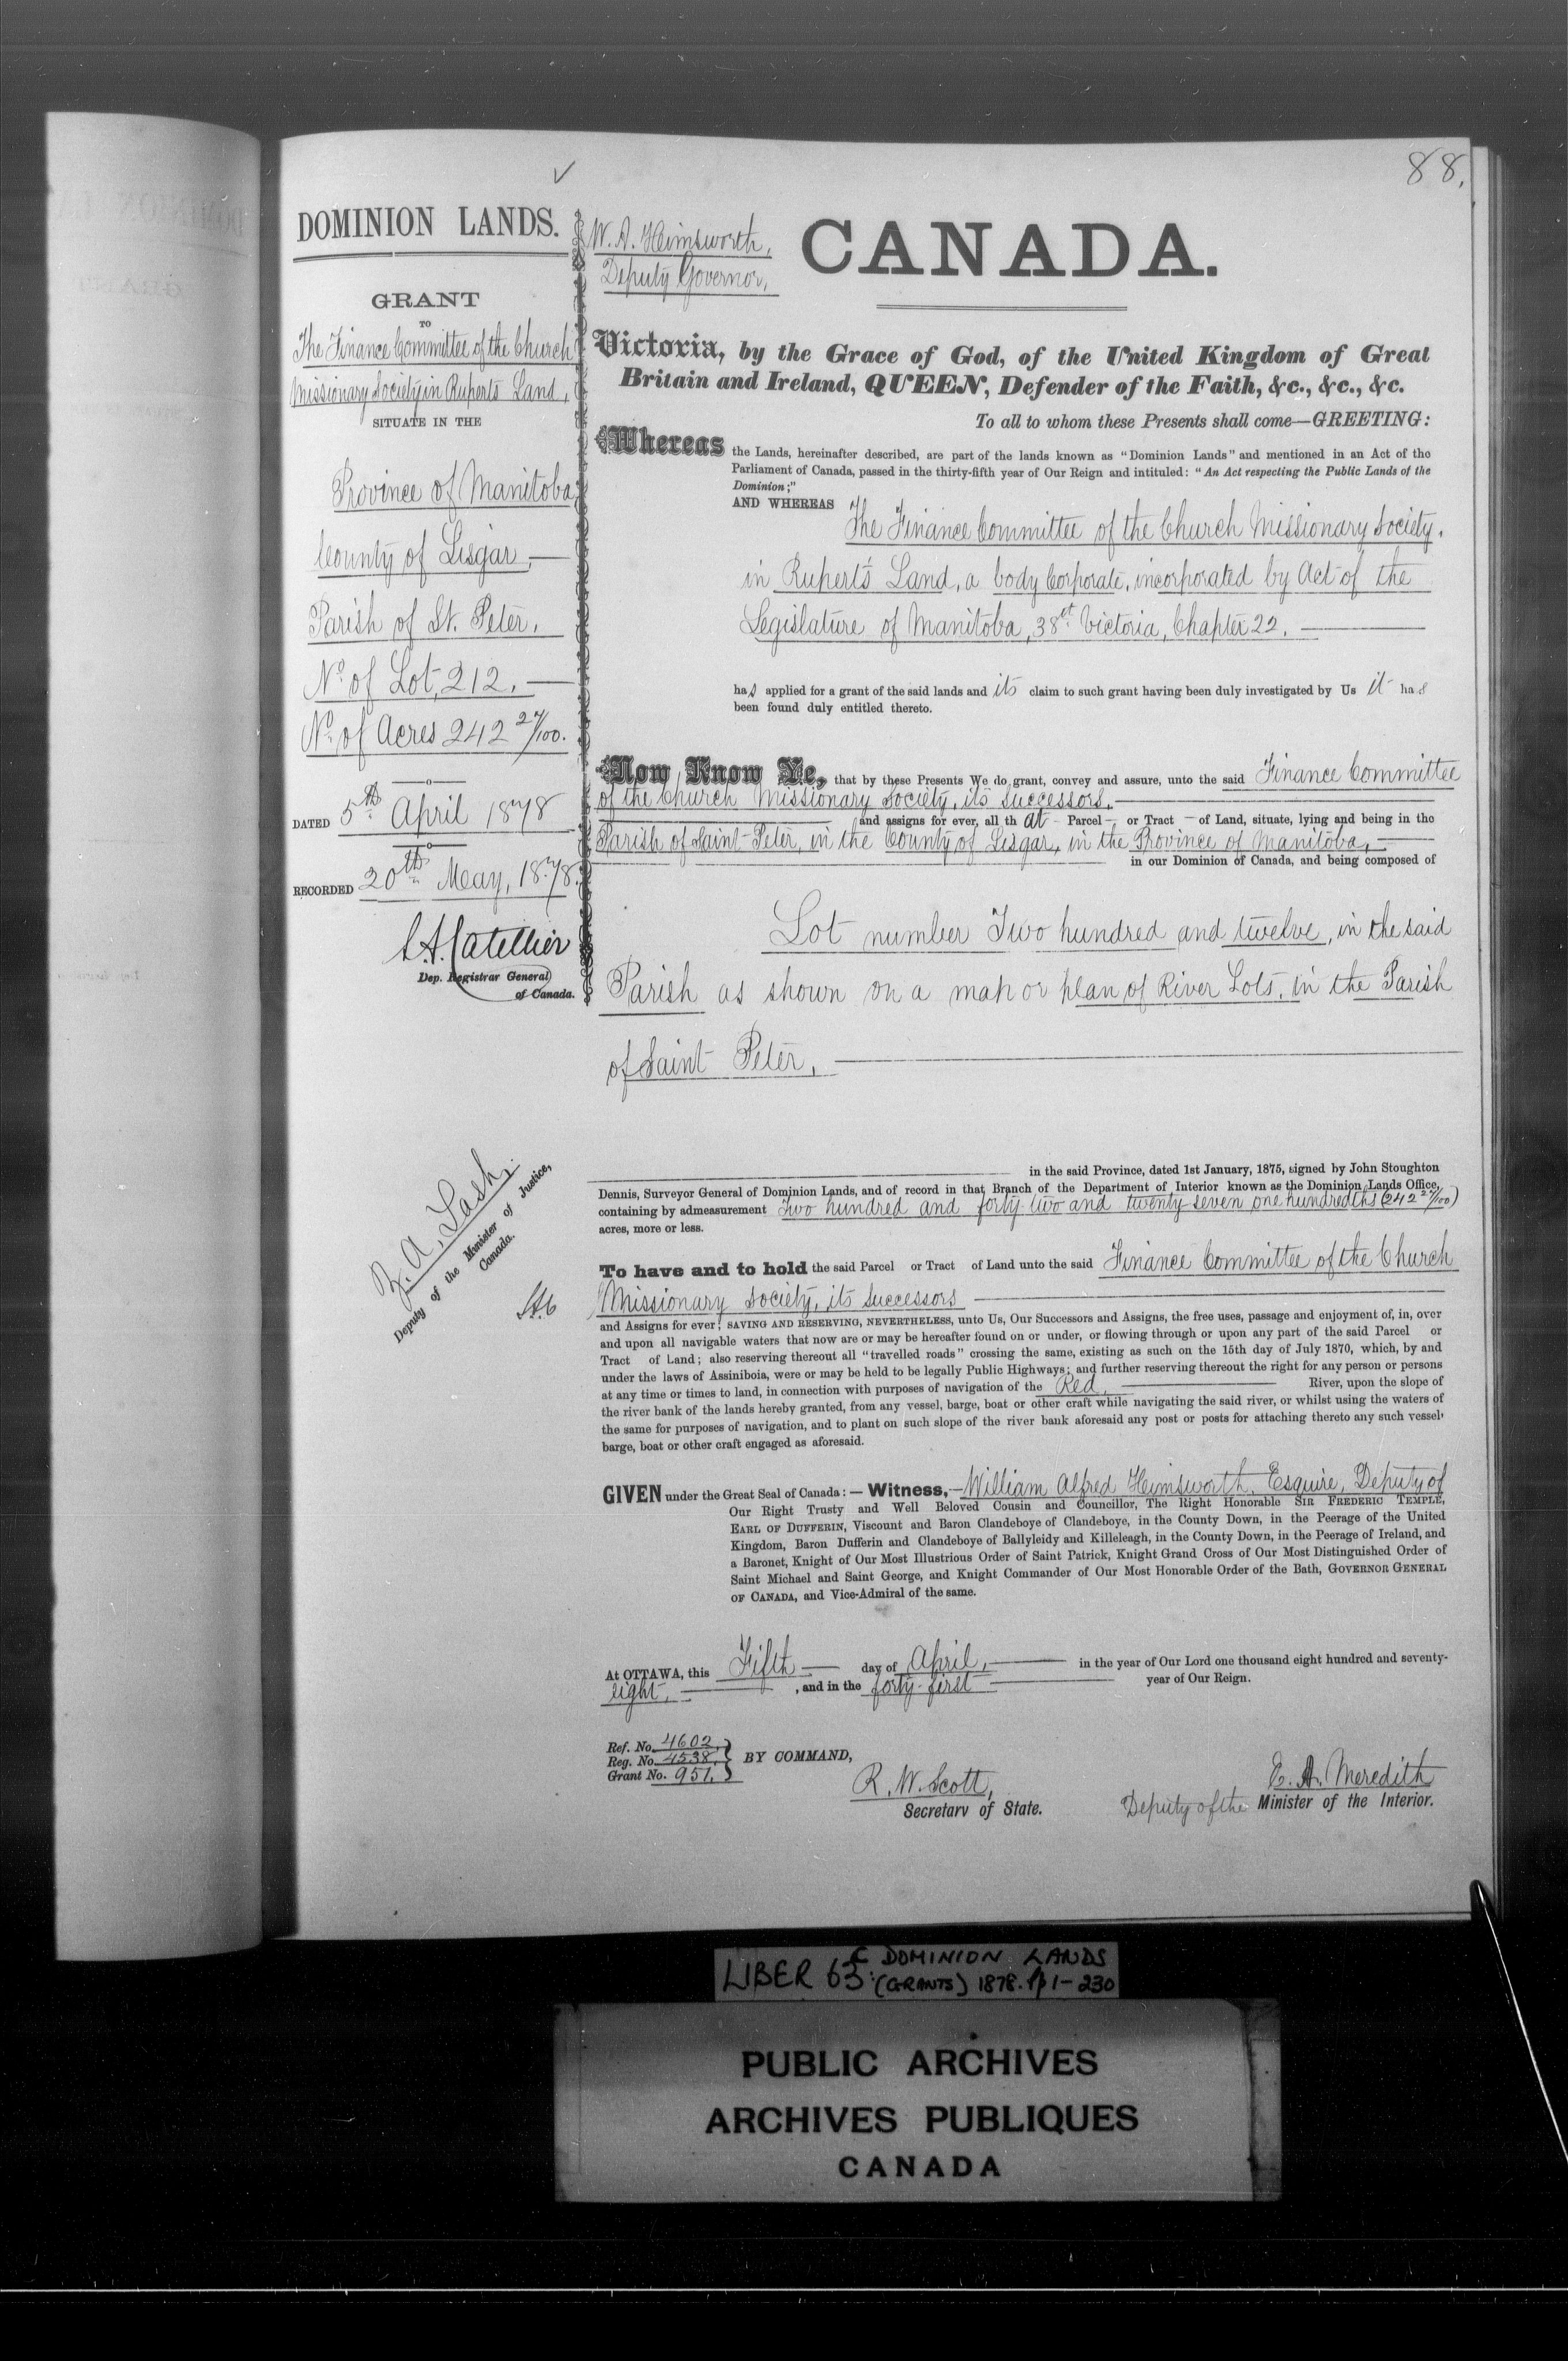 88.
DOMINION LANDS.
GRANT
TO
The Finance Committee of the Church
Missionary Society in Ruperts Land,
SITUATE IN THE
Province of Manitoba
County of Lisgar,
Parish of St. Peter,
No. of Lot, 212,
No. of Acres 242 27/100.
DATED 5th April 1878
RECORDED 20th May, 1878.
L.A. Catellier
Dep. Registrar General
of Canada.
Z. A. Lash,
Deputy of the Minister of Justice,
Canada.
W. A. Himsworth,
Deputy Governor,
CANADA.
Victoria, by the Grace of God, of the United Kingdom of Great
Britain and Ireland, QUEEN, Defender of the Faith, &c., &c., &c.
To all to whom these Presents shall come—GREETING:
Whereas the Lands, hereinafter described, are part of the lands known as "Dominion Lands" and mentioned in an Act of the
Parliament of Canada, passed in the thirty-fifth year of Our Reign and intituled: "An Act respecting the Public Lands of the
Dominion;"
AND WHEREAS The Finance Committee of the Church Missionary Society,
in Rupert's Land, a body Corporate, incorporated by Act of the
Legislature of Manitoba, 38st Victoria, Chapter 22,
has applied for a grant of the said lands and its claim to such grant having been duly investigated by Us it has
been found duly entitled thereto.
Now Know Ye, that by these Presents We do grant, convey and assure, unto the said Finance Committee
of the Church Missionary Society, its successors,
and assigns for ever, all th at Parcel, or Tract of Land, situate, lying and being in the
Parish of Saint Peter, in the County of Lisgar, in the Province of Manitoba,
in our Dominion of Canada, and being composed of
Lot number Two hundred and twelve, in the said
Parish as shown on a map or plan of River Lots, in the Parish
of Saint Peter,
in the said Province, dated 1st January, 1875, signed by John Stoughton
Dennis, Surveyor General of Dominion Lands, and of record in that Branch of the Department of Interior known as the Dominion Lands Office,
containing by admeasurement Two hundred and forty two and twenty seven one hundredths (242 27/100)
acres, more or less.
To have and to hold the said Parcel or Tract of Land unto the said Finance Committee of the Church
Missionary Society, its successors
and Assigns for ever; SAVING AND RESERVING, NEVERTHELESS, unto Us, Our Successors and Assigns, the free uses, passage and enjoyment of, in, over
and upon all navigable waters that now are or may be hereafter found on or under, or flowing through or upon any part of the said Parcel or
Tract of Land; also reserving thereout all "travelled roads" crossing the same, existing as such on the 15th day of July 1870, which, by and
under the laws of Assiniboia, were or may be held to be legally Public Highways; and further reserving thereout the right for any person or persons
at any time or times to land, in connection with purposes of navigation of the Red, River, upon the slope of
the river bank of the lands hereby granted, from any vessel, barge, boat or other craft while navigating the said river, or whilst using the waters of
the same for purposes of navigation, and to plant on such slope of the river bank aforesaid any post or posts for attaching thereto any such vessel,
barge, boat or other craft engaged as aforesaid.
GIVEN under the Great Seal of Canada:—Witness,—William Alfred Himsworth, Esquire, Deputy of
Our Right Trusty and Well Beloved Cousin and Councillor, The Right Honorable SIR FREDERIC TEMPLE,
EARL OF DUFFERIN, Viscount and Baron Clandeboye of Clandeboye, in the County Down, in the Peerage of the United
Kingdom, Baron Dufferin and Clandeboye of Ballyleidy and Killeleagh, in the County Down, in the Peerage of Ireland, and
a Baronet, Knight of Our Most Illustrious Order of Saint Patrick, Knight Grand Cross of Our Most Distinguished Order of
Saint Michael and Saint George, and Knight Commander of Our Most Honorable Order of the Bath, GOVERNOR GENERAL
OF CANADA, and Vice-Admiral of the same.
At OTTAWA, this Fifth day of April, in the year of Our Lord one thousand eight hundred and seventy-
eight, , and in the forty-first year of Our Reign.
Ref. No. 4602,
Reg. No. 4538, BY COMMAND,
Grant No. 951,
R. W. Scott,
Secretary of State.
E. A. Meredith
Deputy of the Minister of the Interior.
LIBER 63 C DOMINION LANDS
(GRANTS) 1878. pp 1-230
PUBLIC ARCHIVES
ARCHIVES PUBLIQUES
CANADA